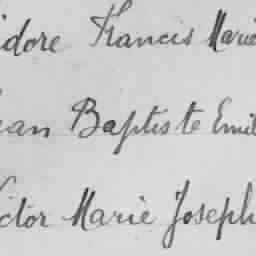 idore Francis Marie
ean Baptiste Emil
ictor Marie Joseph